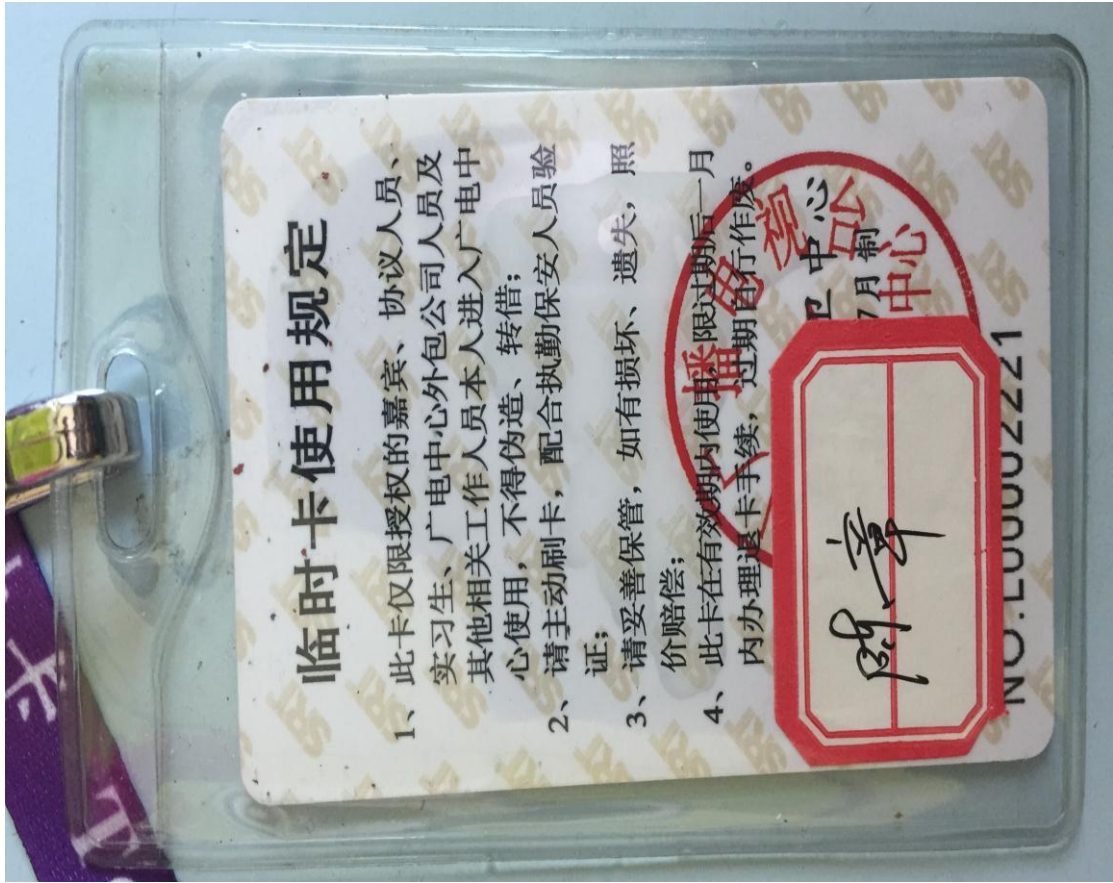 临时卡使用规定
1、此卡仅限授权的嘉宾、协议人员、
实习生、广电中心外包公司人员及
其他相关工作人员本人进入广电中
心使用，不得伪造、转借；
2、请主动刷卡，配合执勤保安人员验
证；
3、请妥善保管，如有损坏、遗失，照
价赔偿；
4、此卡在有效期内使用，限过期后一月
内办理退卡手续，过期自行作废。
卫中心
7月制
中心
NO.L00002221